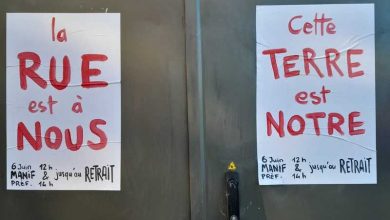 la
RUE
est à
NOUS
6 Juin 12h
MANIF & jusqu'au RETRAIT
PREF. 14h
Cette
TERRE
est
NOTRE
6 Juin 12h
MANIF & jusqu'au RETRAIT
PREF. 14h